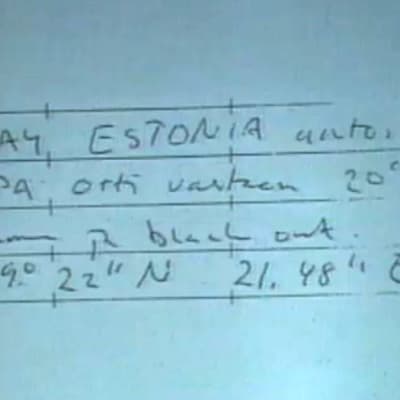 AY, ESTONIA
PA otti vastaan 20°
black out.
9.° 22" N 21.48",